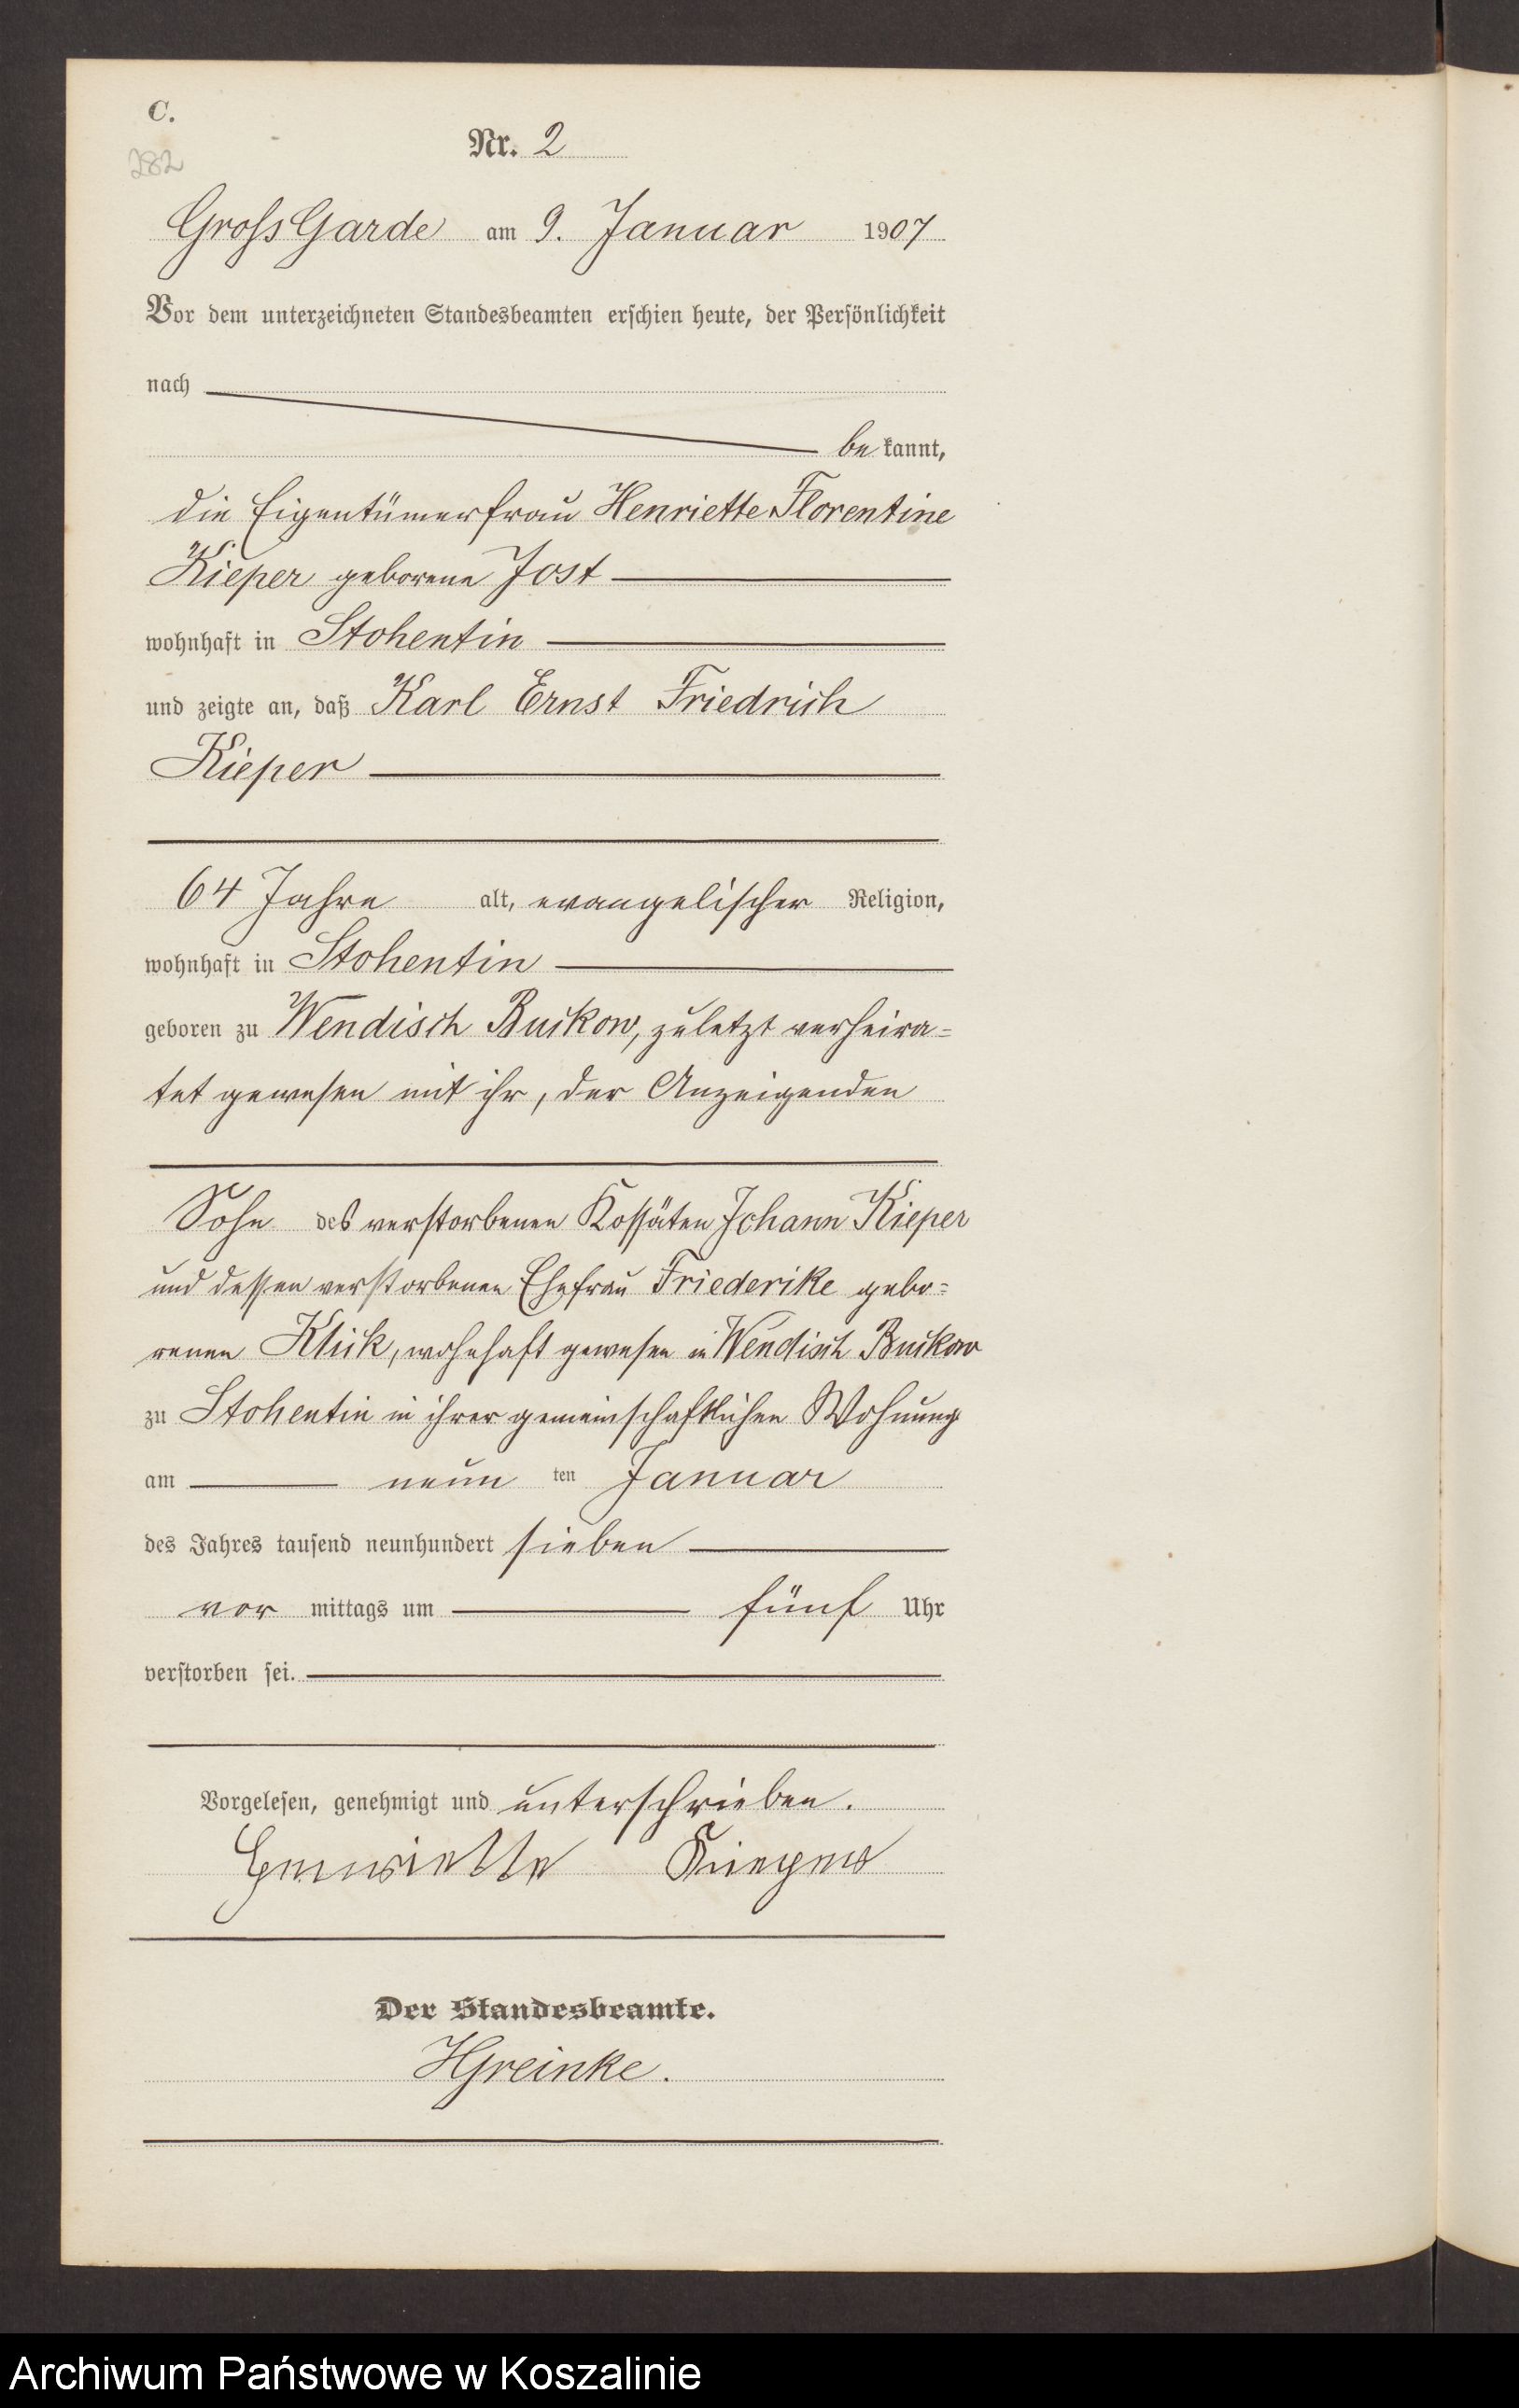 C.
282
Nr. 2
Gross Garde am 9. Januar 1907
Vor dem unterzeichneten Standesbeamten erschien heute, der Persönlichkeit
nach
be kannt,
die Eigentümerfrau Henriette Florentine
Kieper geborene Jost
wohnhaft in Stohentin
und zeigte an, daß Karl Ernst Friedrich
Kieper
64 Jahre alt, evangelischer Religion,
wohnhaft in Stohentin
geboren zu Wendisch Buckow, zuletzt verheira=
tet gewesen mit ihr, der Anzeigenden
Sohn des verstorbenen Kossäten Johann Kieper
und dessen verstorbenen Ehefrau Friederike gebo=
renen Klick, wohnhaft gewesen in Wendisch Buckow
zu Stohentin in ihrer gemeinschaftlichen Wohnung
am neun ten Januar
des Jahres tausend neunhundert sieben
vor mittags um fünf Uhr
verstorben sei.
Vorgelesen, genehmigt und unterschrieben.
Henriette Kieper
Der Standesbeamte.
HGreinke.
Archiwum Państwowe w Koszalinie